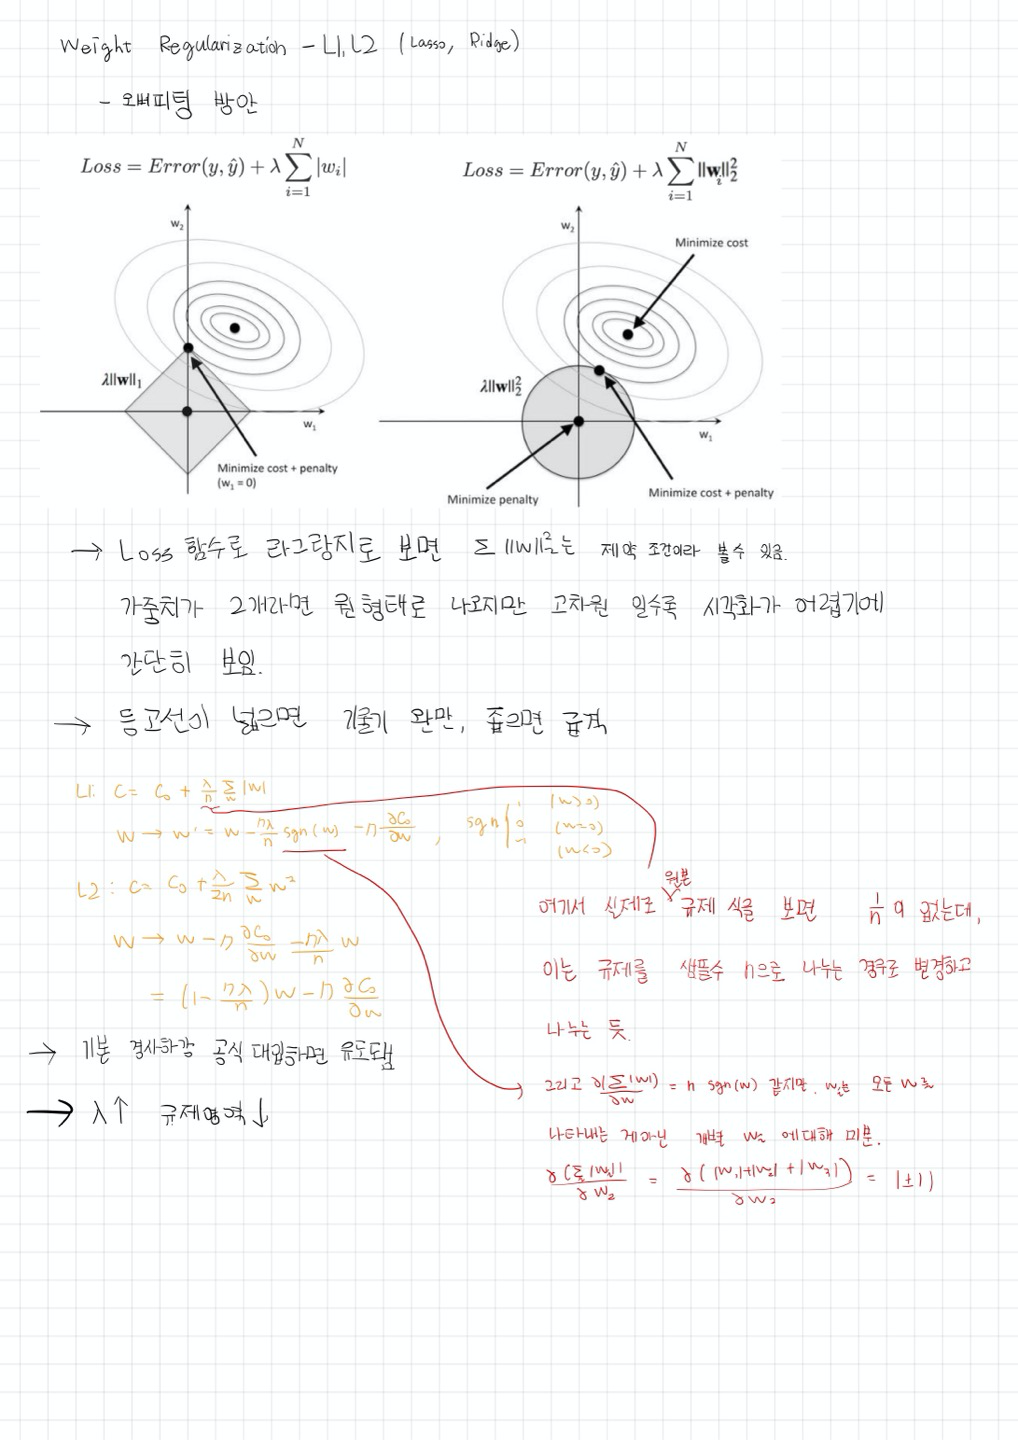 Weight Regularization - L1, L2 (Lasso, Ridge)
- 오버피팅 방안
Loss = Error(y, ŷ) + λ ∑_{i=1}^{N} |w_i|
Loss = Error(y, ŷ) + λ ∑_{i=1}^{N} ||w_i||_2^2
w₂
w₂
Minimize cost
λ||w||₁
λ||w||₂²
w₁
w₁
Minimize cost + penalty
(w₁ = 0)
Minimize penalty
Minimize cost + penalty
→ Loss 함수로 라그랑지로 보면 Σ||W||²₂는 제약 조건이라 볼 수 있음.
가중치가 2개라면 원 형태로 나오지만 고차원 일수록 시각화가 어렵기에
간단히 보임.
→ 등고선이 넓으면 기울기 완만, 좁으면 급격
L1: C = C₀ + λ/n Σ_w |w|
w → w' = w - ηλ/n sgn(w) - η ∂C₀/∂w , sgn { 1 (w>0)
0 (w=0)
-1 (w<0)
L2: C = C₀ + λ/2n Σ_w w²
w → w - η ∂C₀/∂w - ηλ/n w
= (1 - ηλ/n) w - η ∂C₀/∂w
→ 기본 경사하강 공식 대입하면 유도됨
→ λ↑ 규제영역↓
여기서 실제로 원본 규제 식을 보면 1/n 이 없는데,
이는 규제를 샘플수 n으로 나누는 경우로 변경하고
나누는 듯.
그리고 ∂(Σ|w|)/∂w = n sgn(w) 같지만, 모든 w를
나타내는 게 아닌 개별 w₂ 에 대해 미분.
∂(Σ|w|)/∂w₂ = ∂(|w₁|+|w₂|+|w₃|)/∂w₂ = |±1|